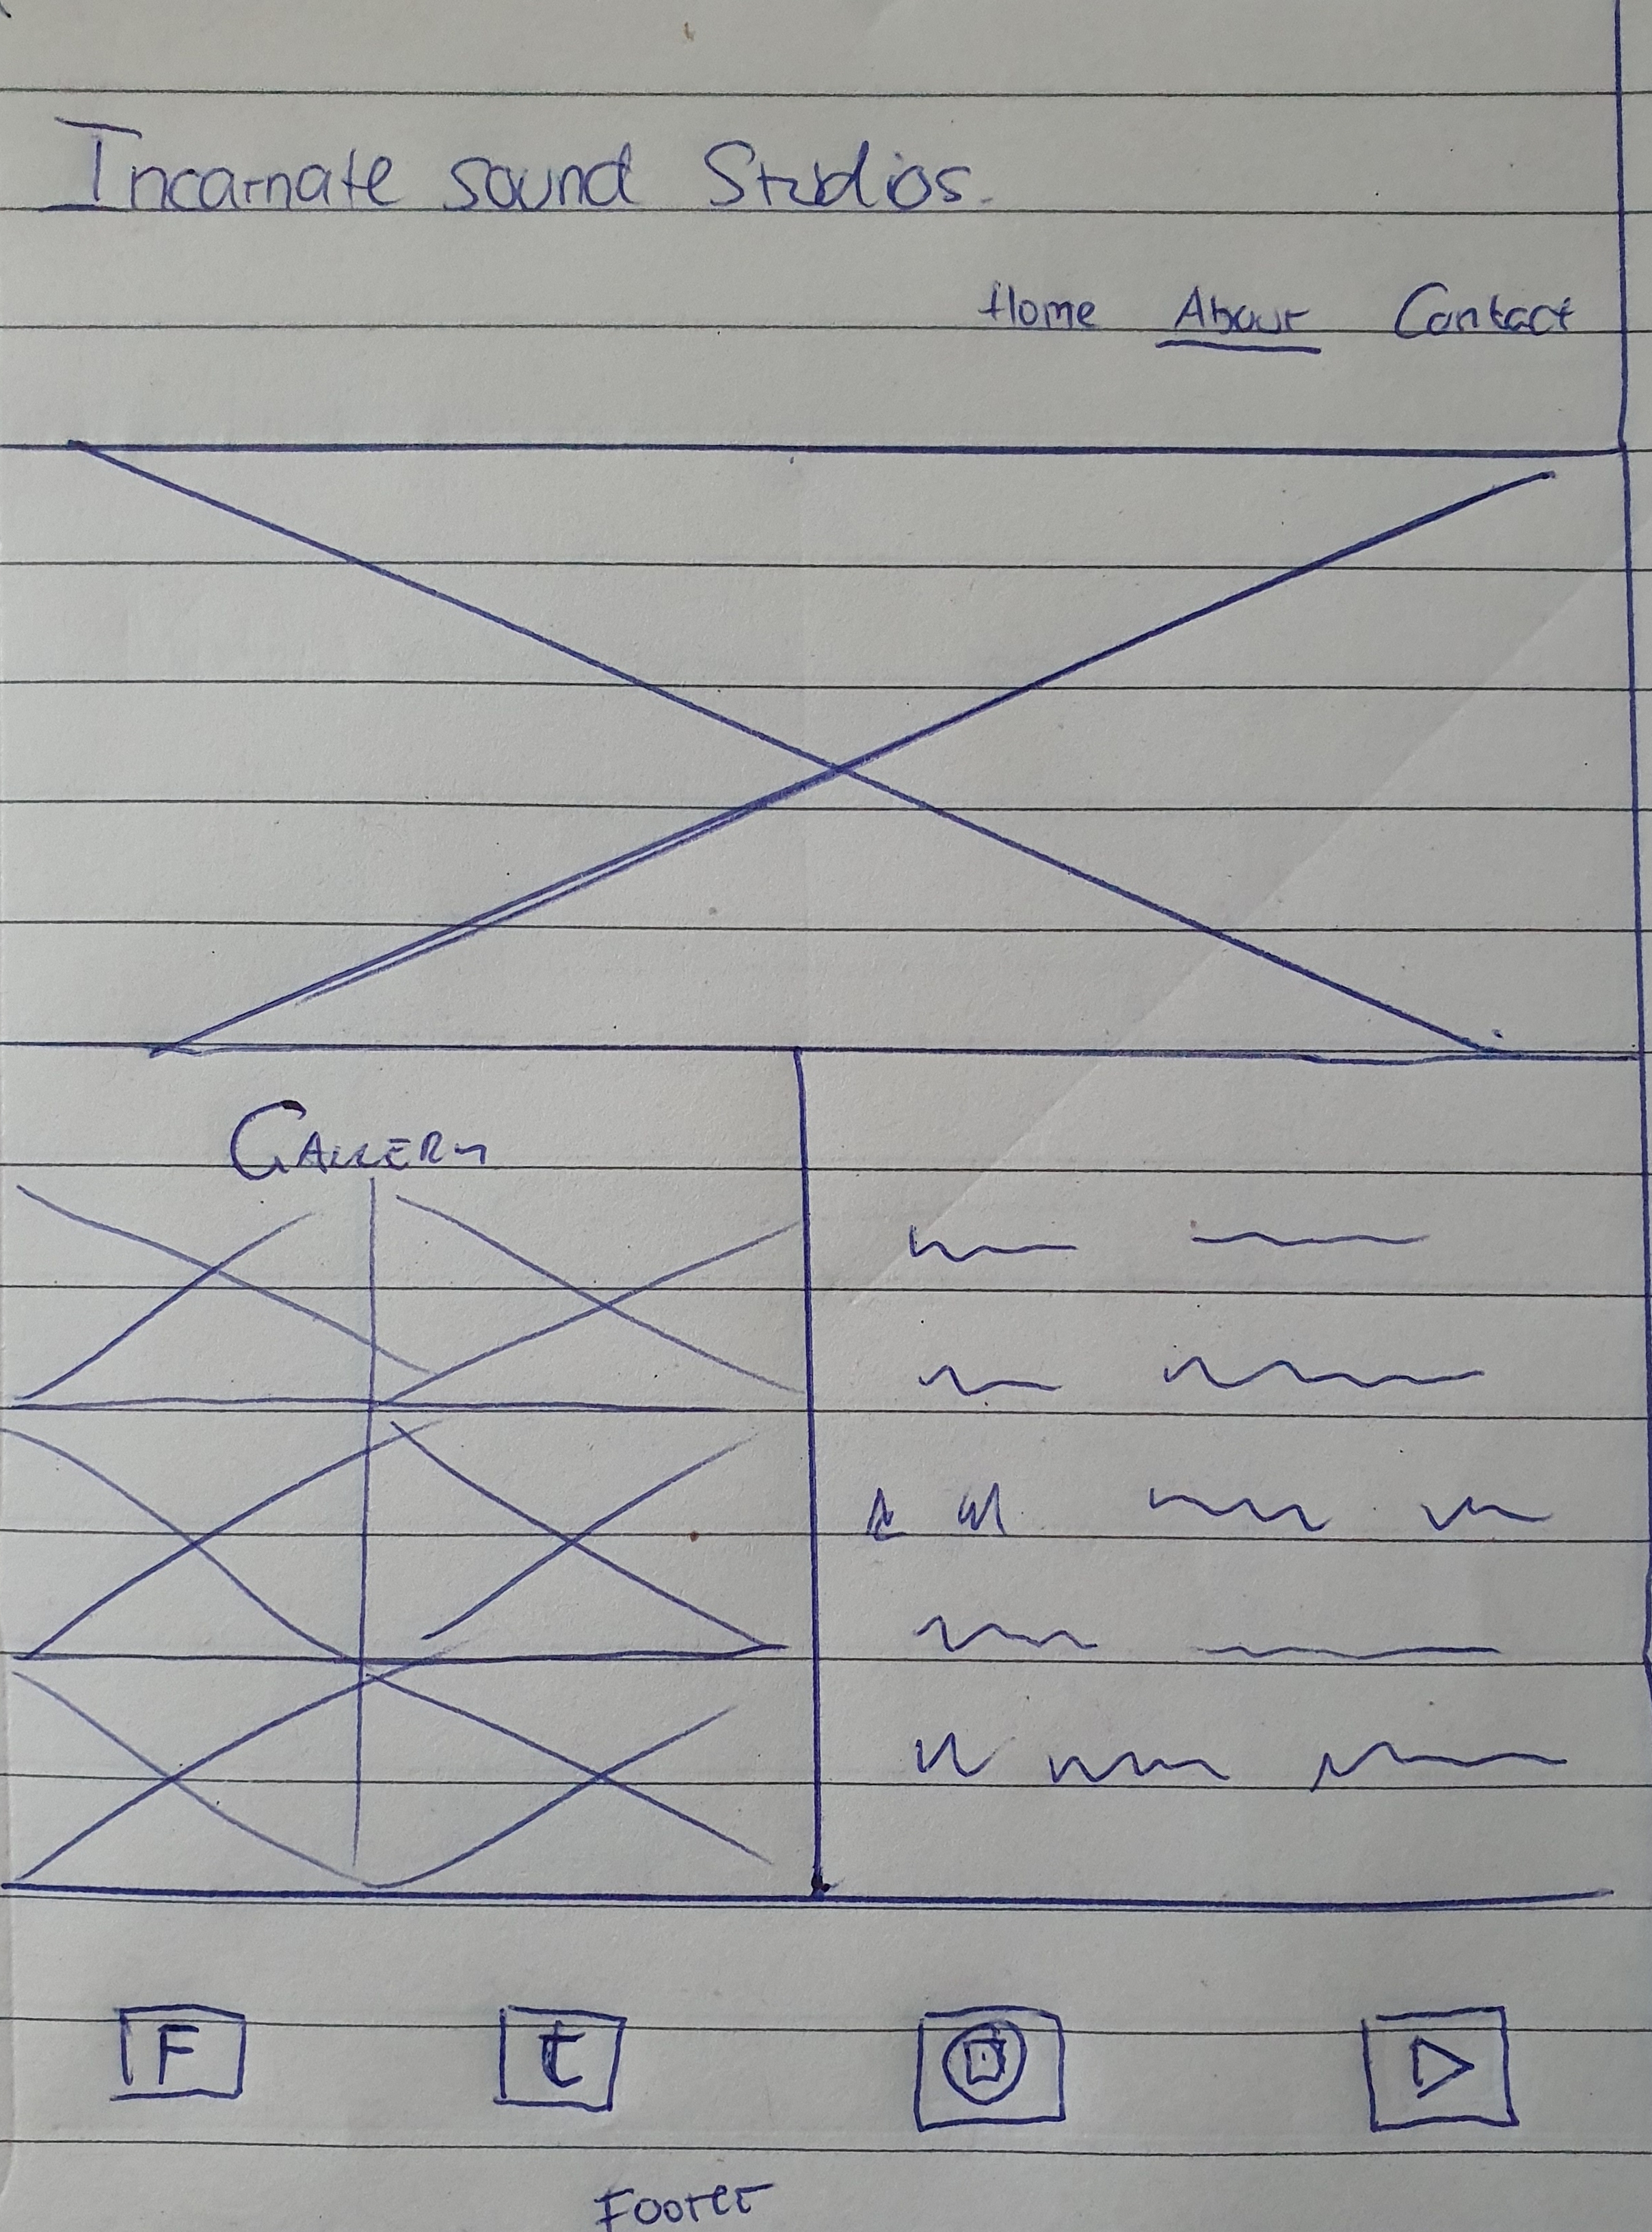 Incarnate sound Studios.
Home About Contact
GALLERY
F t
Footer